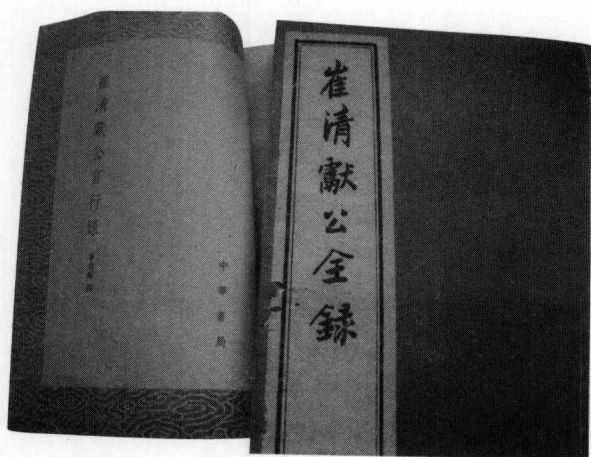 崔清獻公全録
崔清獻公言行録
中華書局